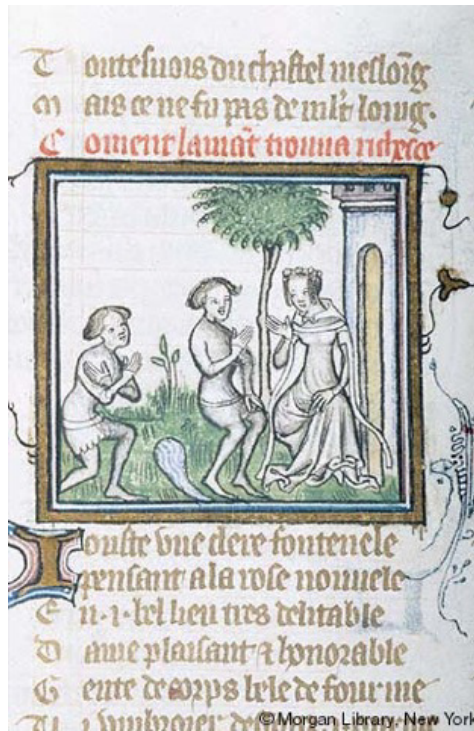 T outesuois du chastel meslong
M ais ce ne fu pas de mlt' loing.
C oment lamāt trouua richece
I ouste vne clere fontenele
P ensant a la rose nouuele
E n .i. bel lieu tres delitable
D ame plaisant & honorable
G ente de corps bele de fourme
© Morgan Library, New York